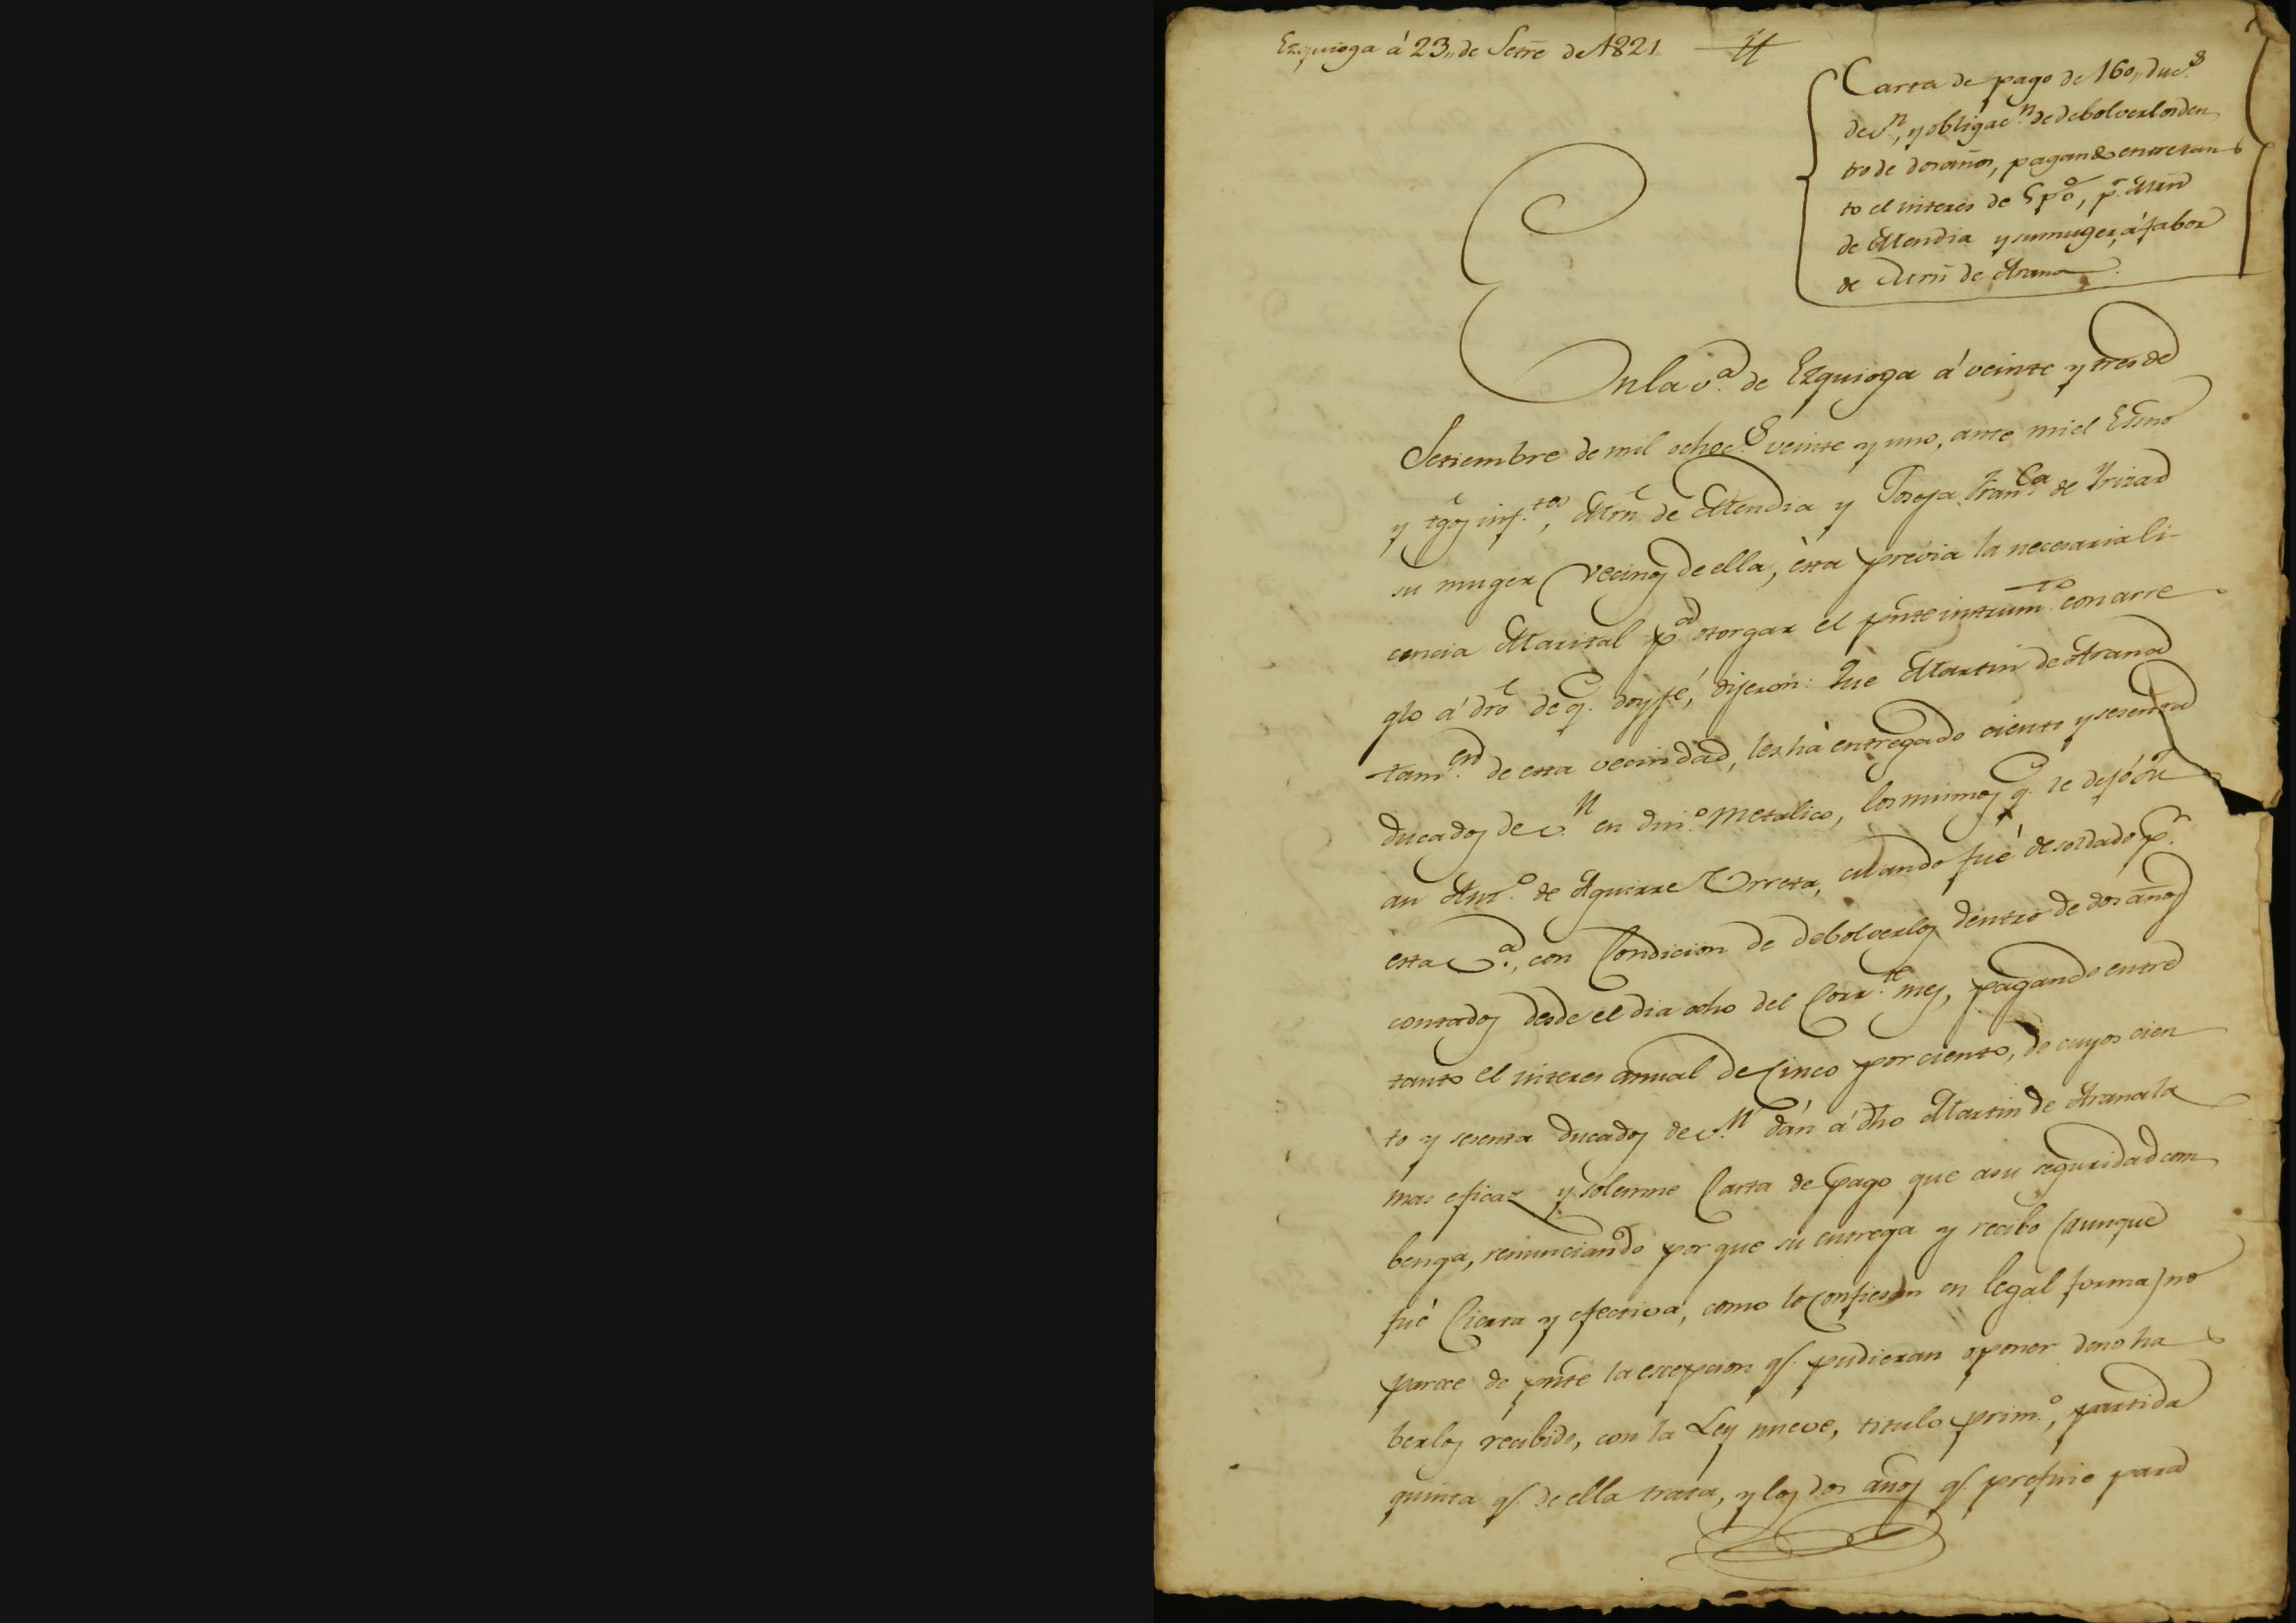 Ezquioga á 23,, de Setre de 1821
Carta de pago de 160,, duc.s
de v.n, y obligac.n de debolverlos den
tro de dos años, pagando entretan
to el interes de 5 p%, p.r Mrn
de Mendia y su muger, á fabor
de Mrn de Arana.
En la v.a de Ezquioga á veinte y tres de
Setiembre de mil ochoc.s veinte y uno, ante mi el Esno
y tgos inf.tos, Mrn de Mendia y Josefa Fran.ca de Yrizar
su muger vecinos de ella, esta previa la necesaria li-
cencia Marital p.a otorgar el pnte instrum.to con arre
glo á dro de q. doy fé, dijeron: Que Martin de Arana
tam.en de esta vecindad, les hà entregado ciento y sesenta
ducados de v.n en din.o metalico, los mismos q. le dejó Ju
an Ant.o de Aguirre Urreta, cuando fué de soldado p.r
esta V.a, con Condicion de debolverlos dentro de dos años
contados desde el dia ocho del Corr.te mes, pagando entre
tanto el interes anual de Cinco por ciento, de cuyos cien
to y sesenta ducados de v.n dán á dho Martin de Arana la
mas eficaz y solemne Carta de pago que a su seguridad com
benga, renunciando por que su entrega y recibo (aunque
fué Cierta y efectiva, como lo Confiesan en legal forma) no
parece de pnte la escepcion q. pudieran oponer de no ha
berlos recibido, con la Ley nueve, titulo prim.o, partida
quinta q. de ella trata, y los dos años q. prefine para